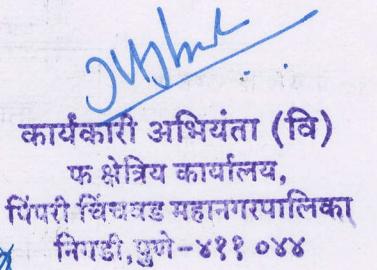 कार्यकारी अभियंता (वि)
फ क्षेत्रिय कार्यालय,
पिंपरी चिंचवड महानगरपालिका
निगडी, पुणे-४११ ०४४